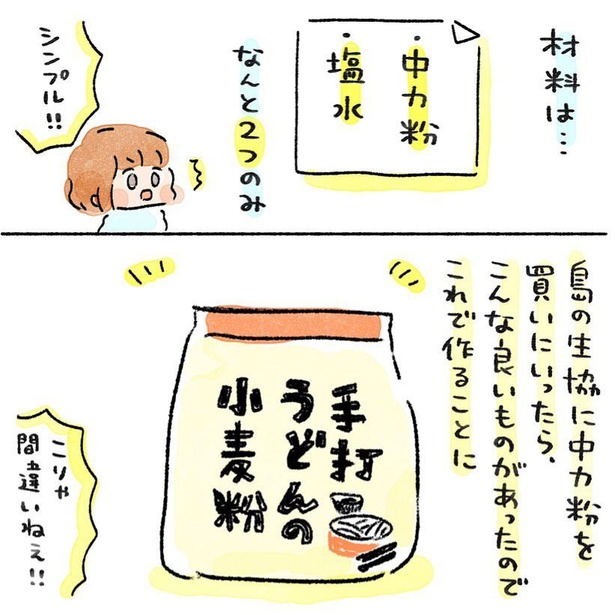 材料は…
・中力粉
・塩水
なんと2つのみ
シンプル!!
島の生協に中力粉を
買いにいったら、
こんな良いものがあったので
これで作ることに
手打
うどんの
小麦粉
こりゃ
間違いねぇ!!